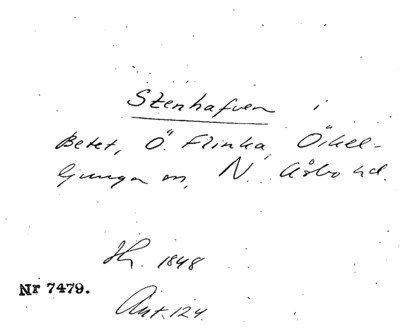 Stenhafven i
Betet, Ö. Flinka, Örkel-
ljunga sn, N. Åsbo hd.
Hr. 1848
Nr 7479.
Ant. 124.